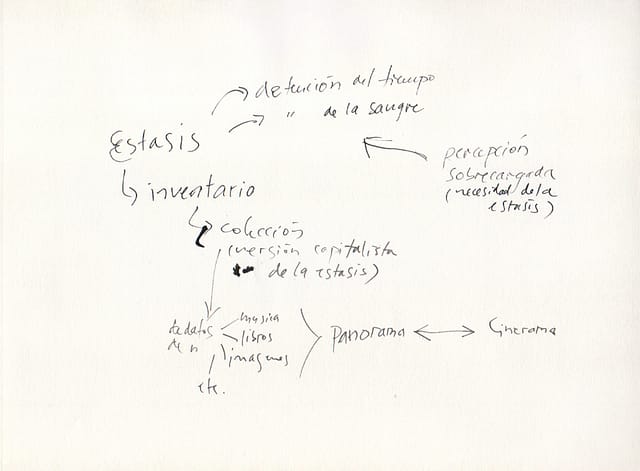 detención del tiempo
" de la sangre
Estasis
percepción
sobrecargada
(necesidad de la
estasis)
inventario
colección
(versión capitalista
de la estasis)
de datos
de n
musica
libros
imagenes
etc.
Panorama
Cinerama